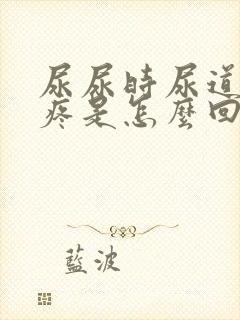 尿尿時尿道
疼是怎麼回
藍波